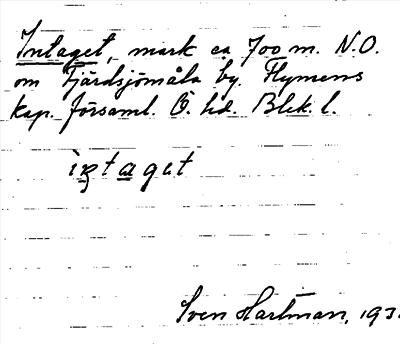 Intaget, mark ca 700 m. N.O.
om Fjärdsjömåla by. Flymens
kap. församl. Ö. hd. Blek. l.
ìn̥taget
Sven Hartman, 193